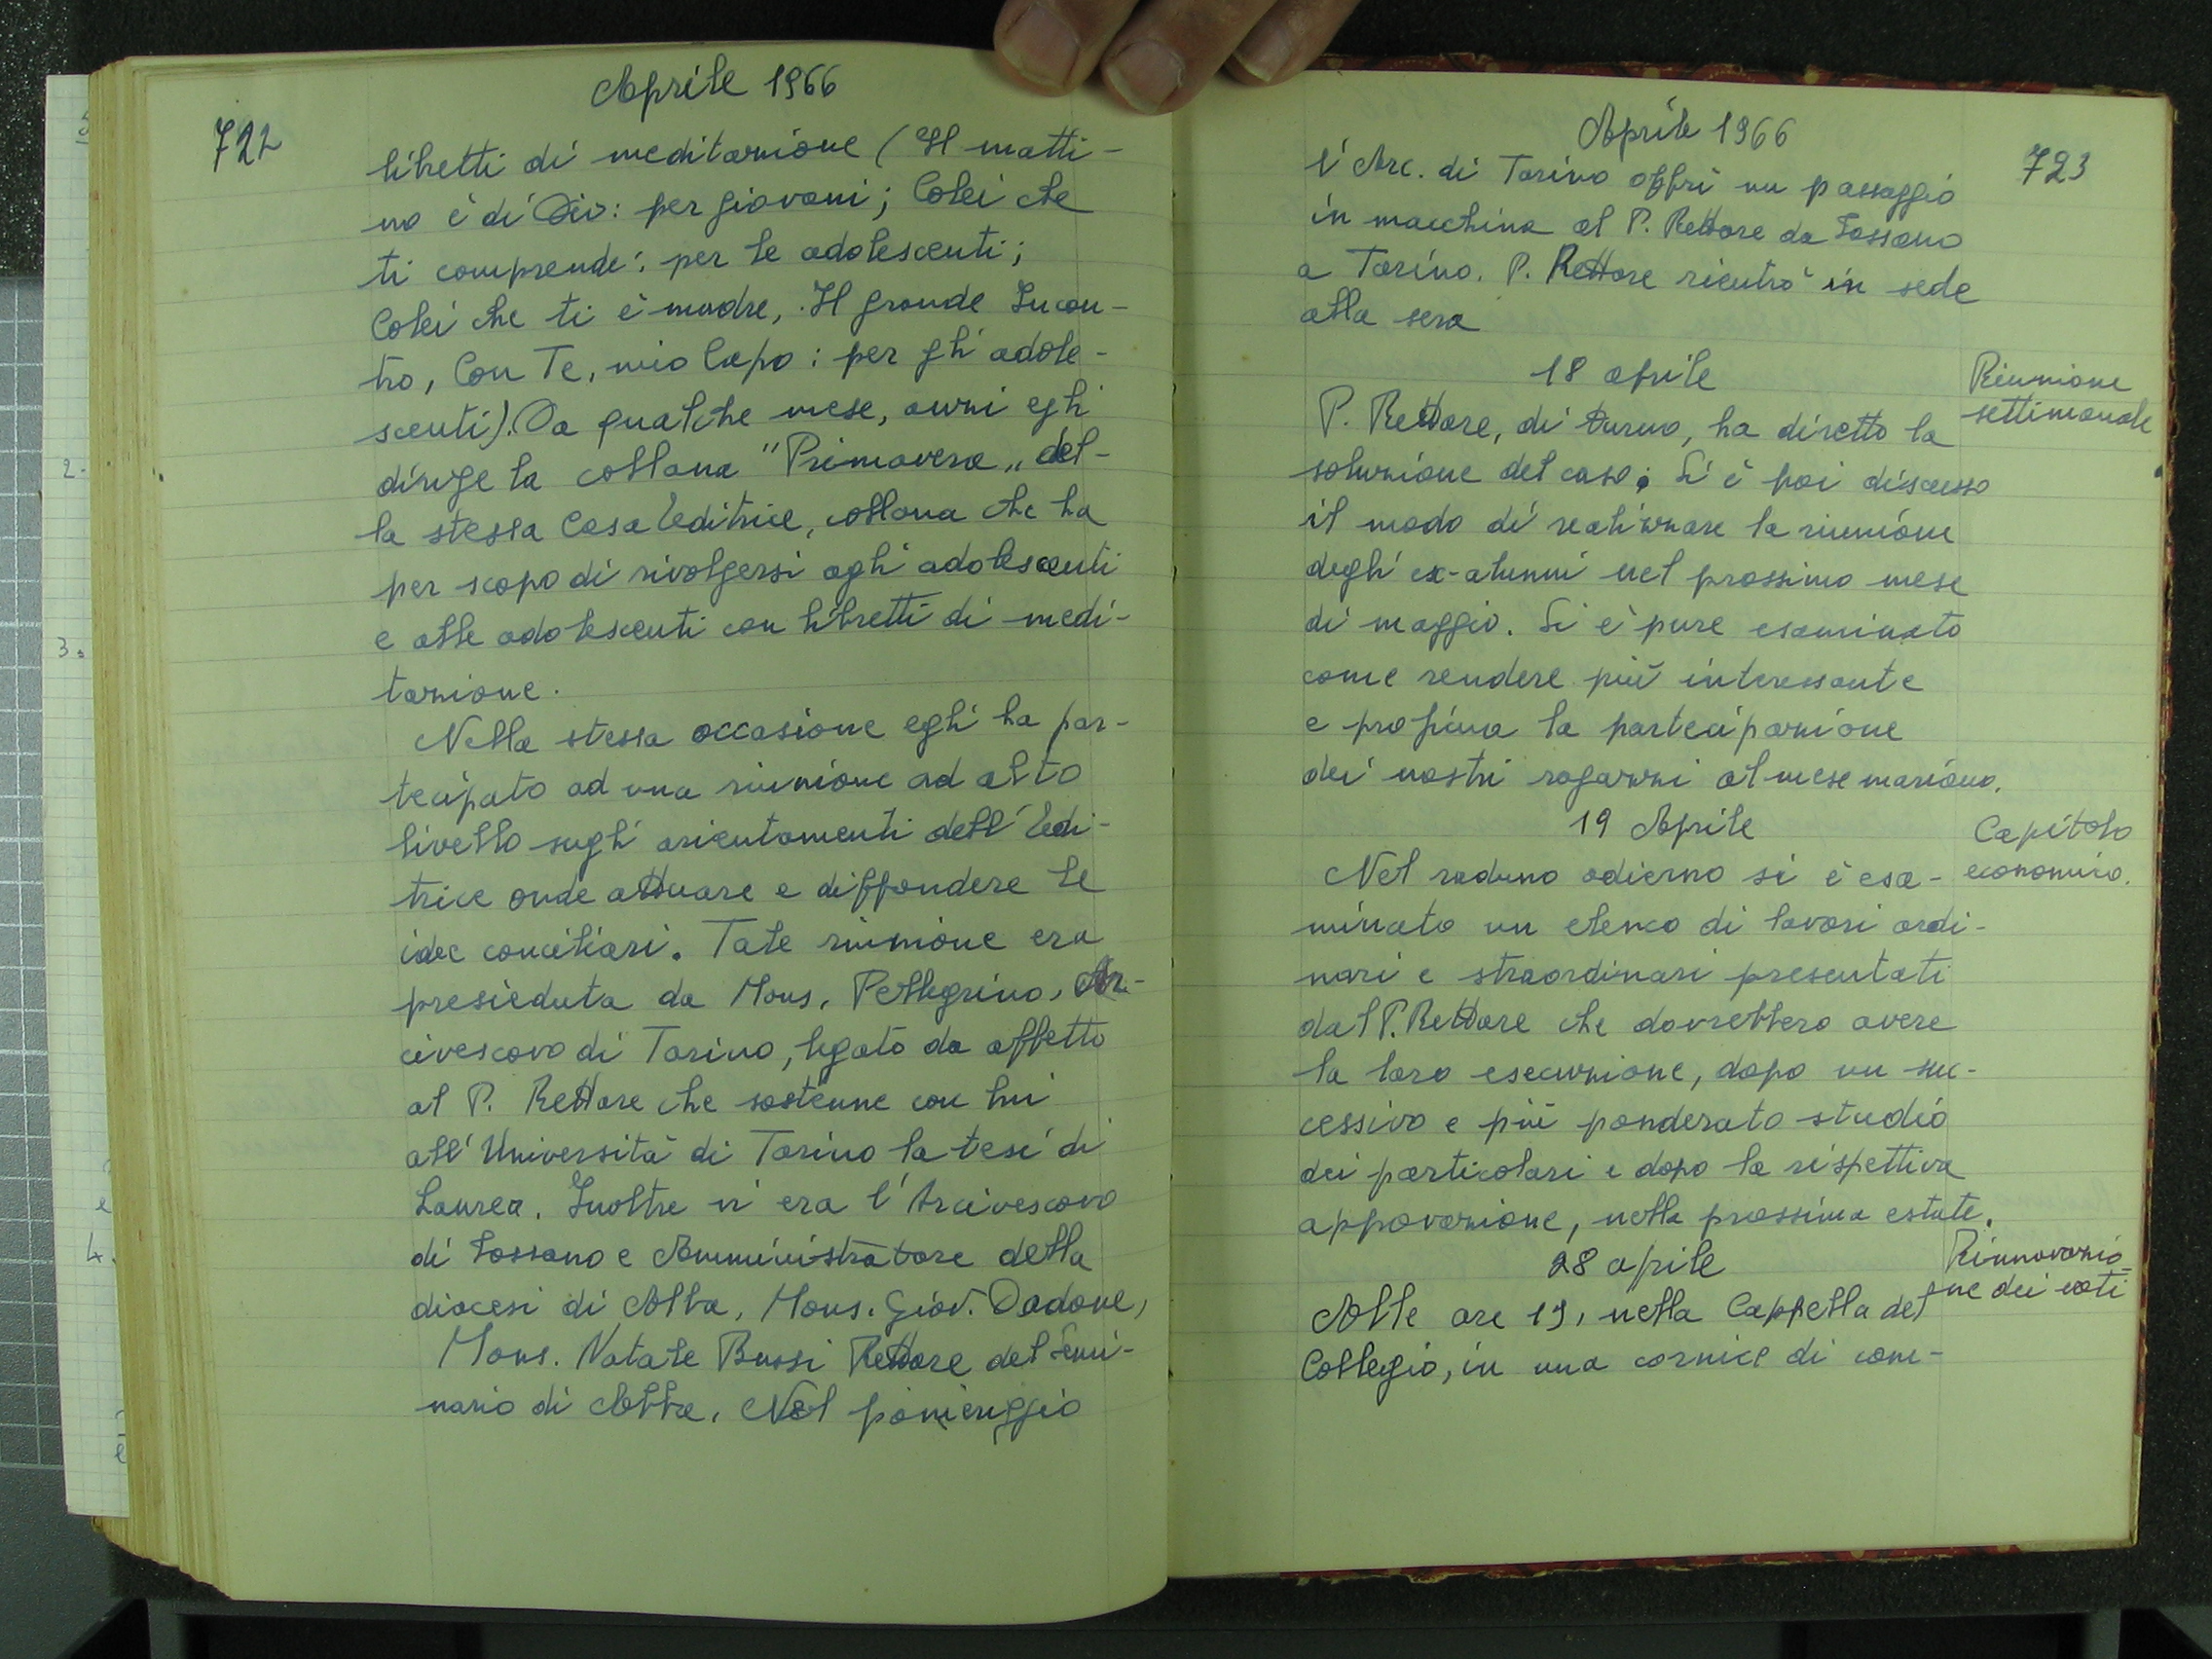 Aprile 1966
722
libretti di meditazione (Il matti-
no è di Dio: per giovani; Colei che
ti comprende: per le adolescenti;
Colei che ti è madre, Il grande Incon-
tro, Con Te, mio Capo: per gli adole-
scenti). Da qualche mese, anzi egli
dirige la collana "Primavera" del-
la stessa Casa Editrice, collana che ha
per scopo di rivolgersi agli adolescenti
e alle adolescenti con libretti di medi-
tazione.
Nella stessa occasione egli ha par-
tecipato ad una riunione ad alto
livello sugli orientamenti dell'Edi-
trice onde attuare e diffondere le
idee conciliari. Tale riunione era
presieduta da Mons. Pellegrino, Ar-
civescovo di Torino, legato da affetto
al P. Rettore che sostenne con lui
all'Università di Torino la tesi di
Laurea. Inoltre vi era l'Arcivescovo
di Fossano e Amministratore della
diocesi di Alba, Mons. Giov. Dadone,
Mons. Natale Bussi Rettore del Semi-
nario di Alba. Nel pomeriggio
Aprile 1966
723
l'Arc. di Torino offrì un passaggio
in macchina al P. Rettore da Fossano
a Torino. P. Rettore rientrò in sede
alla sera
18 aprile
Riunione
settimanale
P. Rettore, di turno, ha diretto la
soluzione del caso. Si è poi discusso
il modo di realizzare la riunione
degli ex-alunni nel prossimo mese
di maggio. Si è pure esaminato
come rendere più interessante
e proficua la partecipazione
dei nostri ragazzi al mese mariano.
19 Aprile
Capitolo
economico.
Nel raduno odierno si è esa-
minato un elenco di lavori ordi-
nari e straordinari presentati
dal P. Rettore che dovrebbero avere
la loro esecuzione, dopo un suc-
cessivo e più ponderato studio
dei particolari e dopo la rispettiva
appovazione, nella prossima estate.
28 aprile
Rinnovazio-
ne dei voti
Alle ore 19, nella Cappella del
Collegio, in una cornice di com-